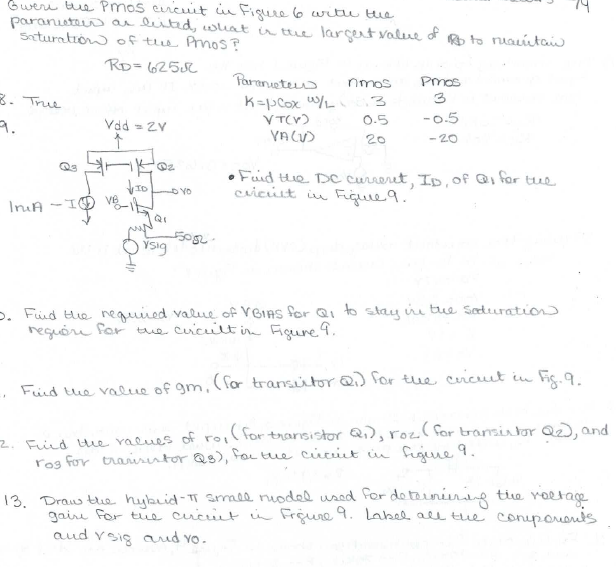 Given the PMOS circuit in Figure 6 with the 79
parameters as listed, what is the largest value of RD to maintain
saturation of the PMOS?
RD = 625Ω
Parameters nmos PMOS
8. True K=μCox W/L 3 3
9. Vdd = 2V VT(V) 0.5 -0.5
VA(V) 20 -20
Q3 Q2
• Find the DC current, ID, of Q1 for the
ID VO circuit in Figure 9.
1mA - I VB
Q1
50Ω
Vsig
0. Find the required value of VBIAS for Q1 to stay in the saturation
region for the circuit in Figure 9.
. Find the value of gm, (for transistor Q1) for the circuit in Fig. 9.
2. Find the values of ro1 (for transistor Q1), ro2 (for transistor Q2), and
ro3 for transistor Q3), for the circuit in figure 9.
13. Draw the hybrid-π small model used for determining the voltage
gain for the circuit in Figure 9. Label all the components
and vsig and vo.